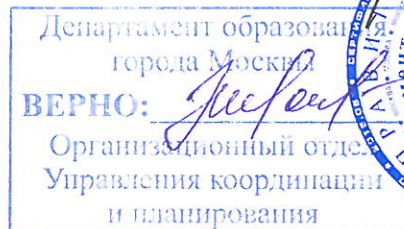 Департамент образования
города Москвы
ВЕРНО:
Организационный отдел
Управления координации
и планирования